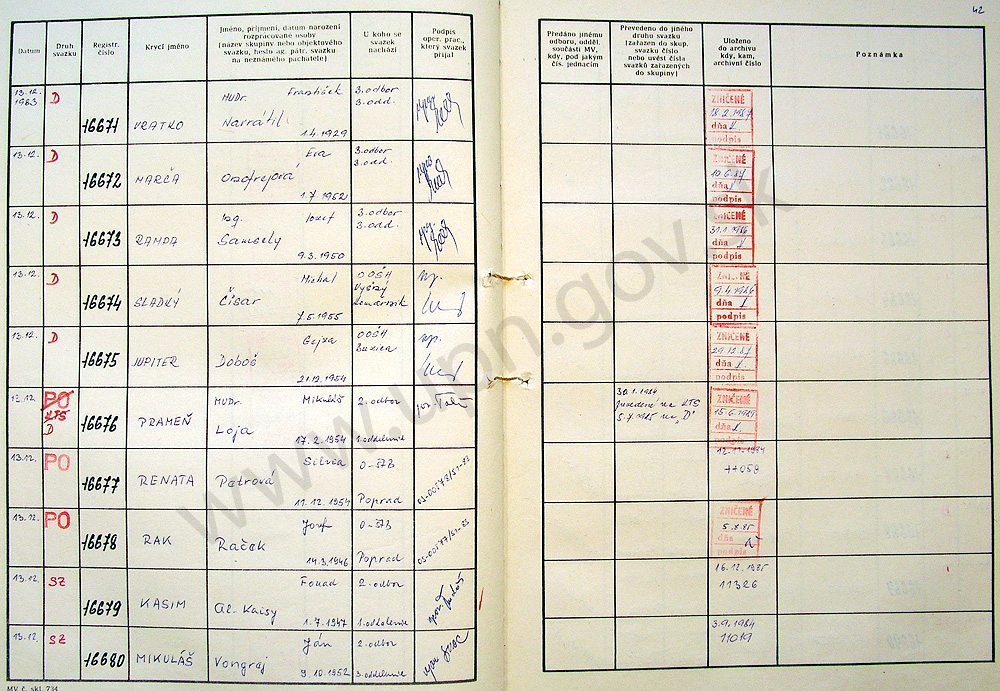 42
Datum
Druh svazku
Registr. číslo
Krycí jméno
Jméno, příjmení, datum narození
rozpracované osoby
(název skupiny nebo objektového
svazku, heslo ag. pátr. svazku
na neznámého pachatele)
U koho se
svazek
nachází
Podpis
oper. prac.,
který svazek
přijal
Předáno jinému
odboru, odděl.
součásti MV,
kdy, pod jakým
čís. jednacím
Převedeno do jiného
druhu svazku
(zařazen do skup.
svazku číslo
nebo uvést čísla
svazků zařazených
do skupiny)
Uloženo
do archivu
kdy, kam,
archivní číslo
Poznámka
13.12. D MUDr. František 3. odbor
1983 3. odd.
16671 VRATKO Navrátil
1.4.1929
ZNIČENÉ
18.2.1987
dňa
podpis
13.12. D Eva 3. odbor
3. odd.
16672 MARČA Ondrejova
1.7.1952
ZNIČENÉ
10.6.87
dňa
podpis
13.12. D Ing. Jozef 3. odbor
3. odd.
16673 RAMDA Samsely
9.3.1950
ZNIČENÉ
31.1.1986
dňa
podpis
13.12. D Michal OOŠH
Vyšný
16674 SLADKÝ Čisar
7.5.1955
ZNIČENÉ
9.4.1986
dňa
podpis
13.12. D Gejza OOŠH
16675 JUPITER Doboš
21.12.1954
ZNIČENÉ
29.12.87
dňa
podpis
13.12. PO MUDr. Mikuláš 2. odbor
KTS
D
16676 PRAMEŇ Loja
17.2.1954 1. oddelenie
30.1.1984
na KTS
5.7.1985 na „D"
ZNIČENÉ
15.6.1989
dňa
podpis
13.12. PO Silvia O-ŠTB
16677 RENATA Petrová
11.12.1954 Poprad
12.11.1984
44058
13.12. PO Jozef O-ŠTB
16678 RAK Raček
14.3.1946 Poprad
ZNIČENÉ
5.8.85
dňa
podpis
13.12. SZ Fouad 2. odbor
16679 KASIM Al. Kaisy
1.7.1947 1. oddelenie
16.12.1985
11326
13.12. SZ Ján 2. odbor
16680 MIKULÁŠ Vongraj
9.10.1952 3. oddelenie
3.9.1984
11019
MV č. skl. 734
www.upn.gov.sk